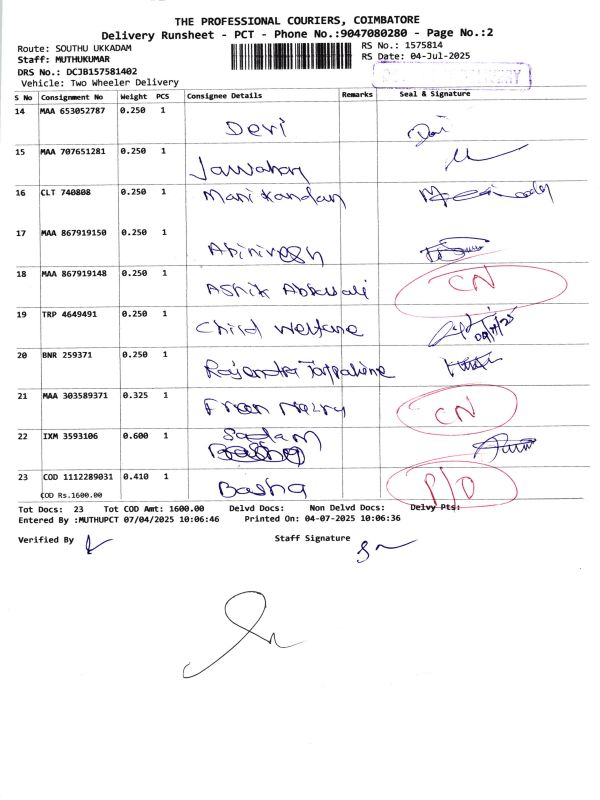 THE PROFESSIONAL COURIERS, COIMBATORE
Delivery Runsheet - PCT - Phone No.:9047080280 - Page No.:2
Route: SOUTHU UKKADAM RS No.: 1575814
Staff: MUTHUKUMAR RS Date: 04-Jul-2025
DRS No.: DCJB157581402
Vehicle: Two Wheeler Delivery
S No Consignment No Weight PCS Consignee Details Remarks Seal & Signature
14 MAA 653052787 0.250 1 Devi
15 MAA 707651281 0.250 1 Jawahar
16 CLT 740808 0.250 1 Mani kandan
17 MAA 867919150 0.250 1
18 MAA 867919148 0.250 1 Ashik CN
19 TRP 4649491 0.250 1 Child Welfare
20 BNR 259371 0.250 1
21 MAA 303589371 0.325 1 CN
22 IXM 3593106 0.600 1 Sadam
23 COD 1112289031 0.410 1 Basha P/O
COD Rs.1600.00
Tot Docs: 23 Tot COD Amt: 1600.00 Delvd Docs: Non Delvd Docs: Delvy Pts:
Entered By :MUTHUPCT 07/04/2025 10:06:46 Printed On: 04-07-2025 10:06:36
Verified By Staff Signature